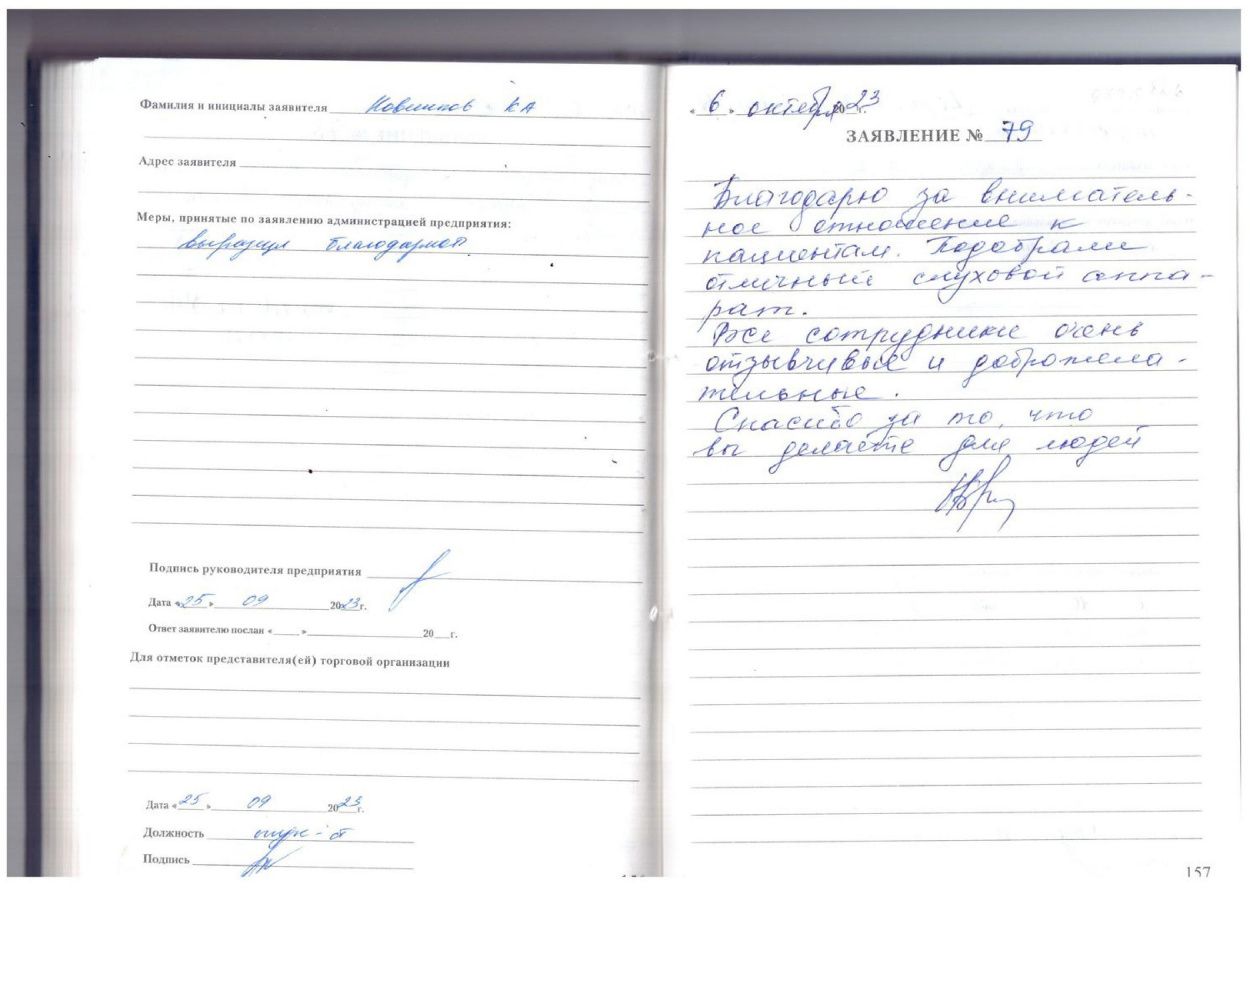 Фамилия и инициалы заявителя КА
Адрес заявителя
Меры, принятые по заявлению администрацией предприятия:
выразил благодарност
Подпись руководителя предприятия
Дата «25» 09 2023 г.
Ответ заявителю послан « » 20 г.
Для отметок представителя(ей) торговой организации
Дата «25» 09 2023 г.
Должность
Подпись
«6» октября 2023 г.
ЗАЯВЛЕНИЕ № 79
Благодарю за вниматель-
ное отношение к
пациентам. Подобрали
отличный слуховой аппа-
рат.
Все сотрудники очень
отзывчивые и доброжела-
тельные.
Спасибо за то, что
вы делаете для людей
157